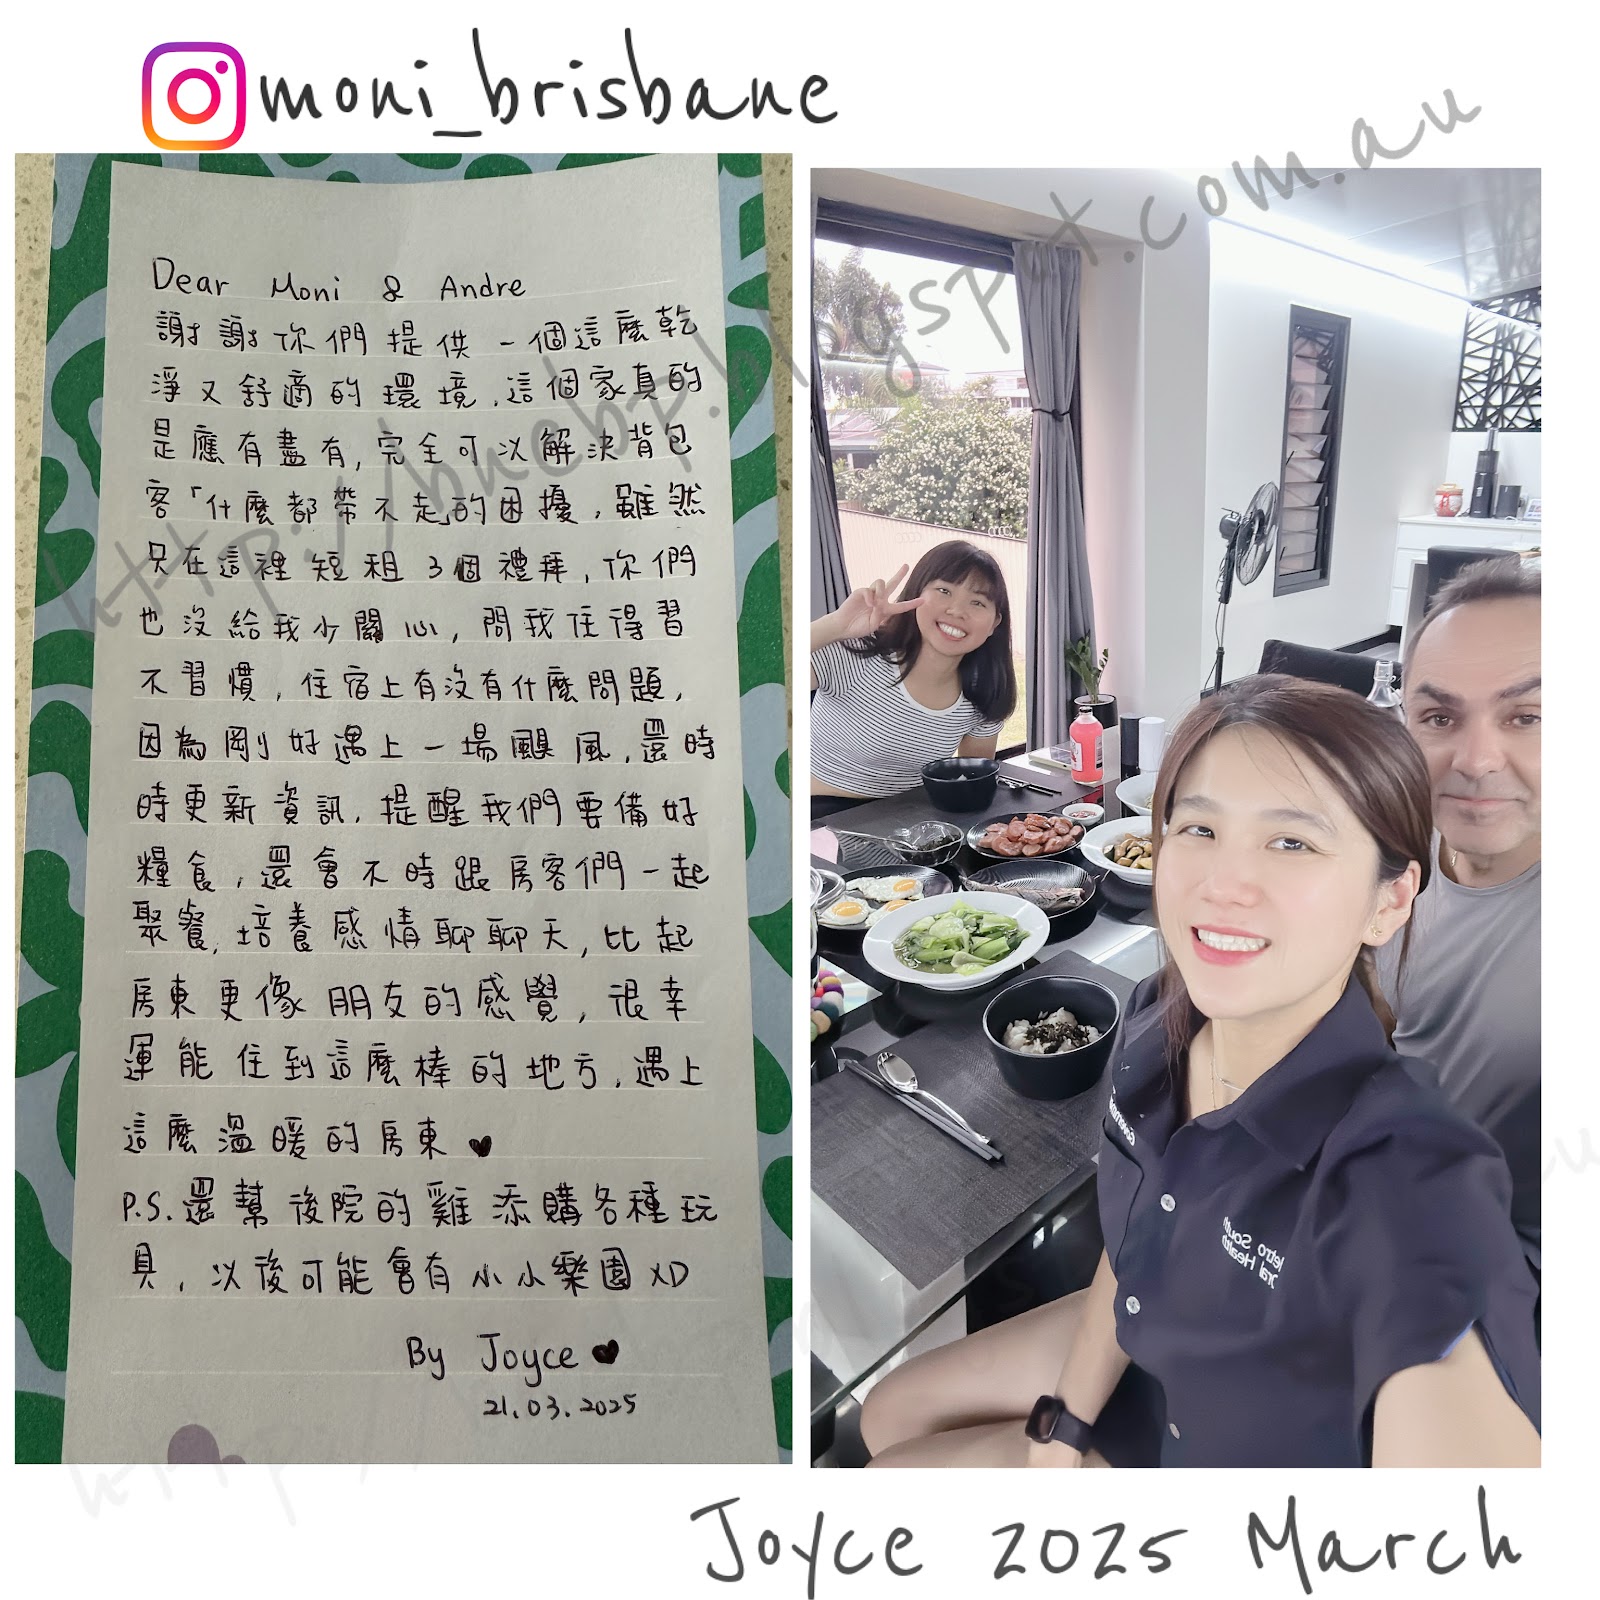 moni_brisbane
Dear Moni & Andre
謝謝你們提供一個這麼乾
淨又舒適的環境,這個家真的
是應有盡有,完全可以解決背包
客「什麼都帶不走」的困擾,雖然
只在這裡短租3個禮拜,你們
也沒給我少關心,問我住得習
不習慣,住宿上有沒有什麼問題,
因為剛好遇上一場颶風,還時
時更新資訊,提醒我們要備好
糧食,還會不時跟房客們一起
聚餐,培養感情聊聊天,比起
房東更像朋友的感覺,很幸
運能住到這麼棒的地方,遇上
這麼溫暖的房東♥
P.S.還幫後院的雞添購各種玩
具,以後可能會有小小樂園XD
By Joyce♥
21.03.2025
http://bnebp.blogspot.com.au
Metro South
Oral Health
Joyce 2025 March